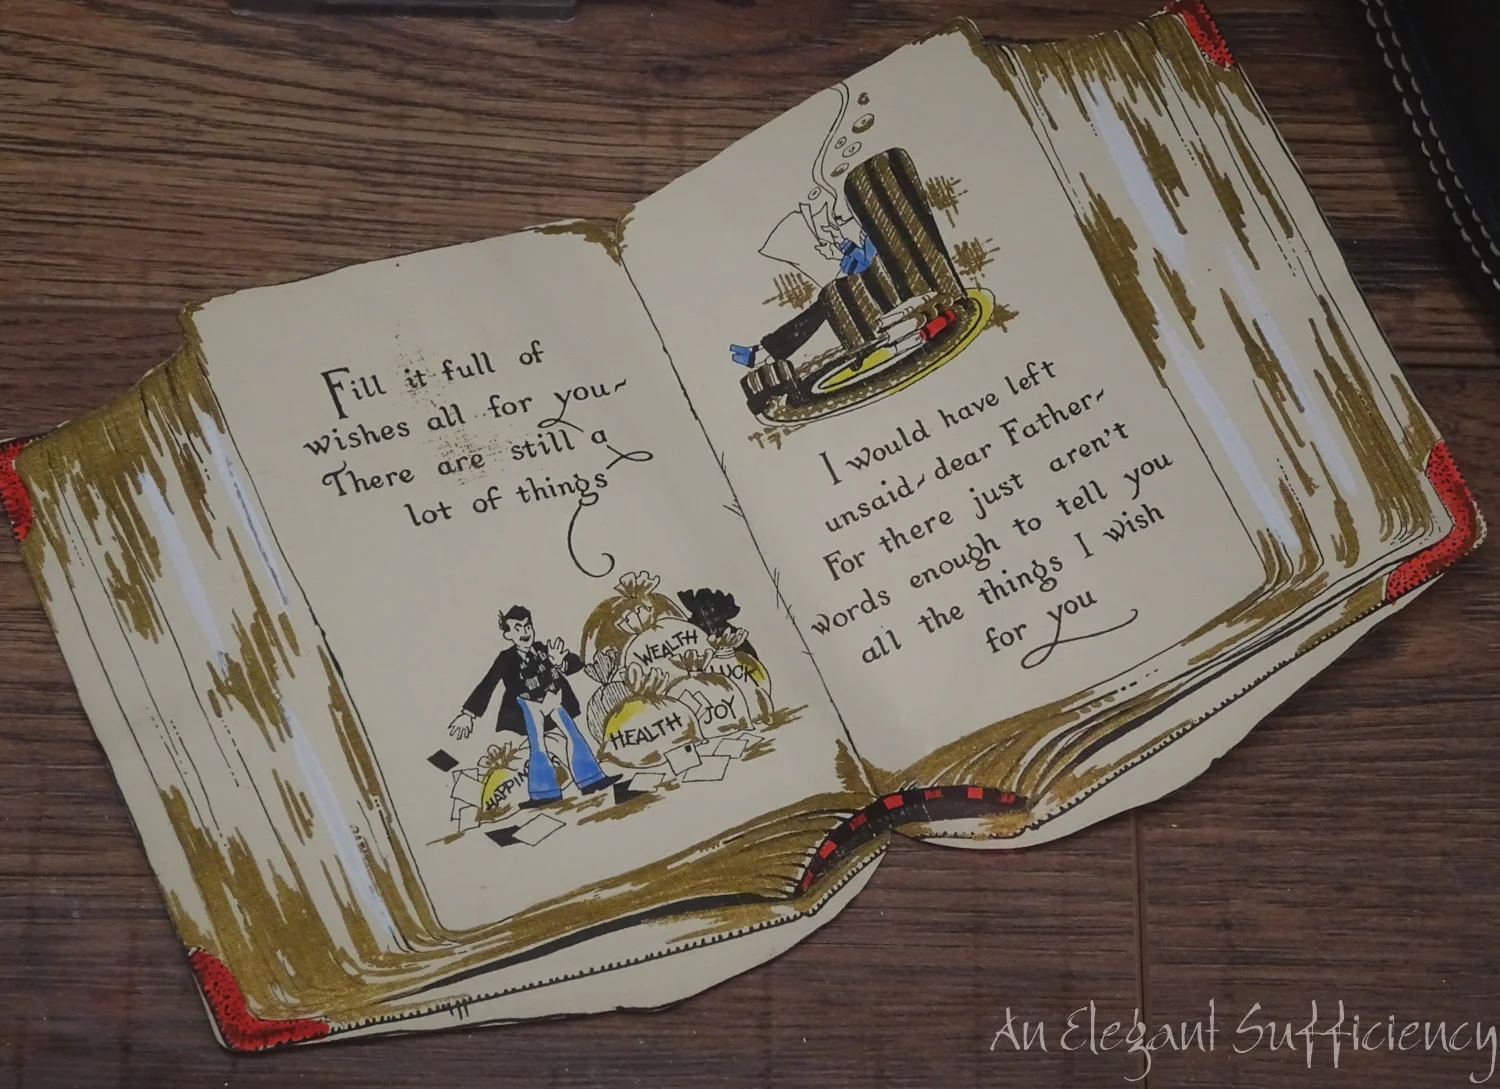 Fill it full of
wishes all for you~
There are still a
lot of things
WEALTH
LUCK
HEALTH
JOY
I would have left
unsaid~ dear Father~
For there just aren't
words enough to tell you
all the things I wish
for you
An Elegant Sufficiency